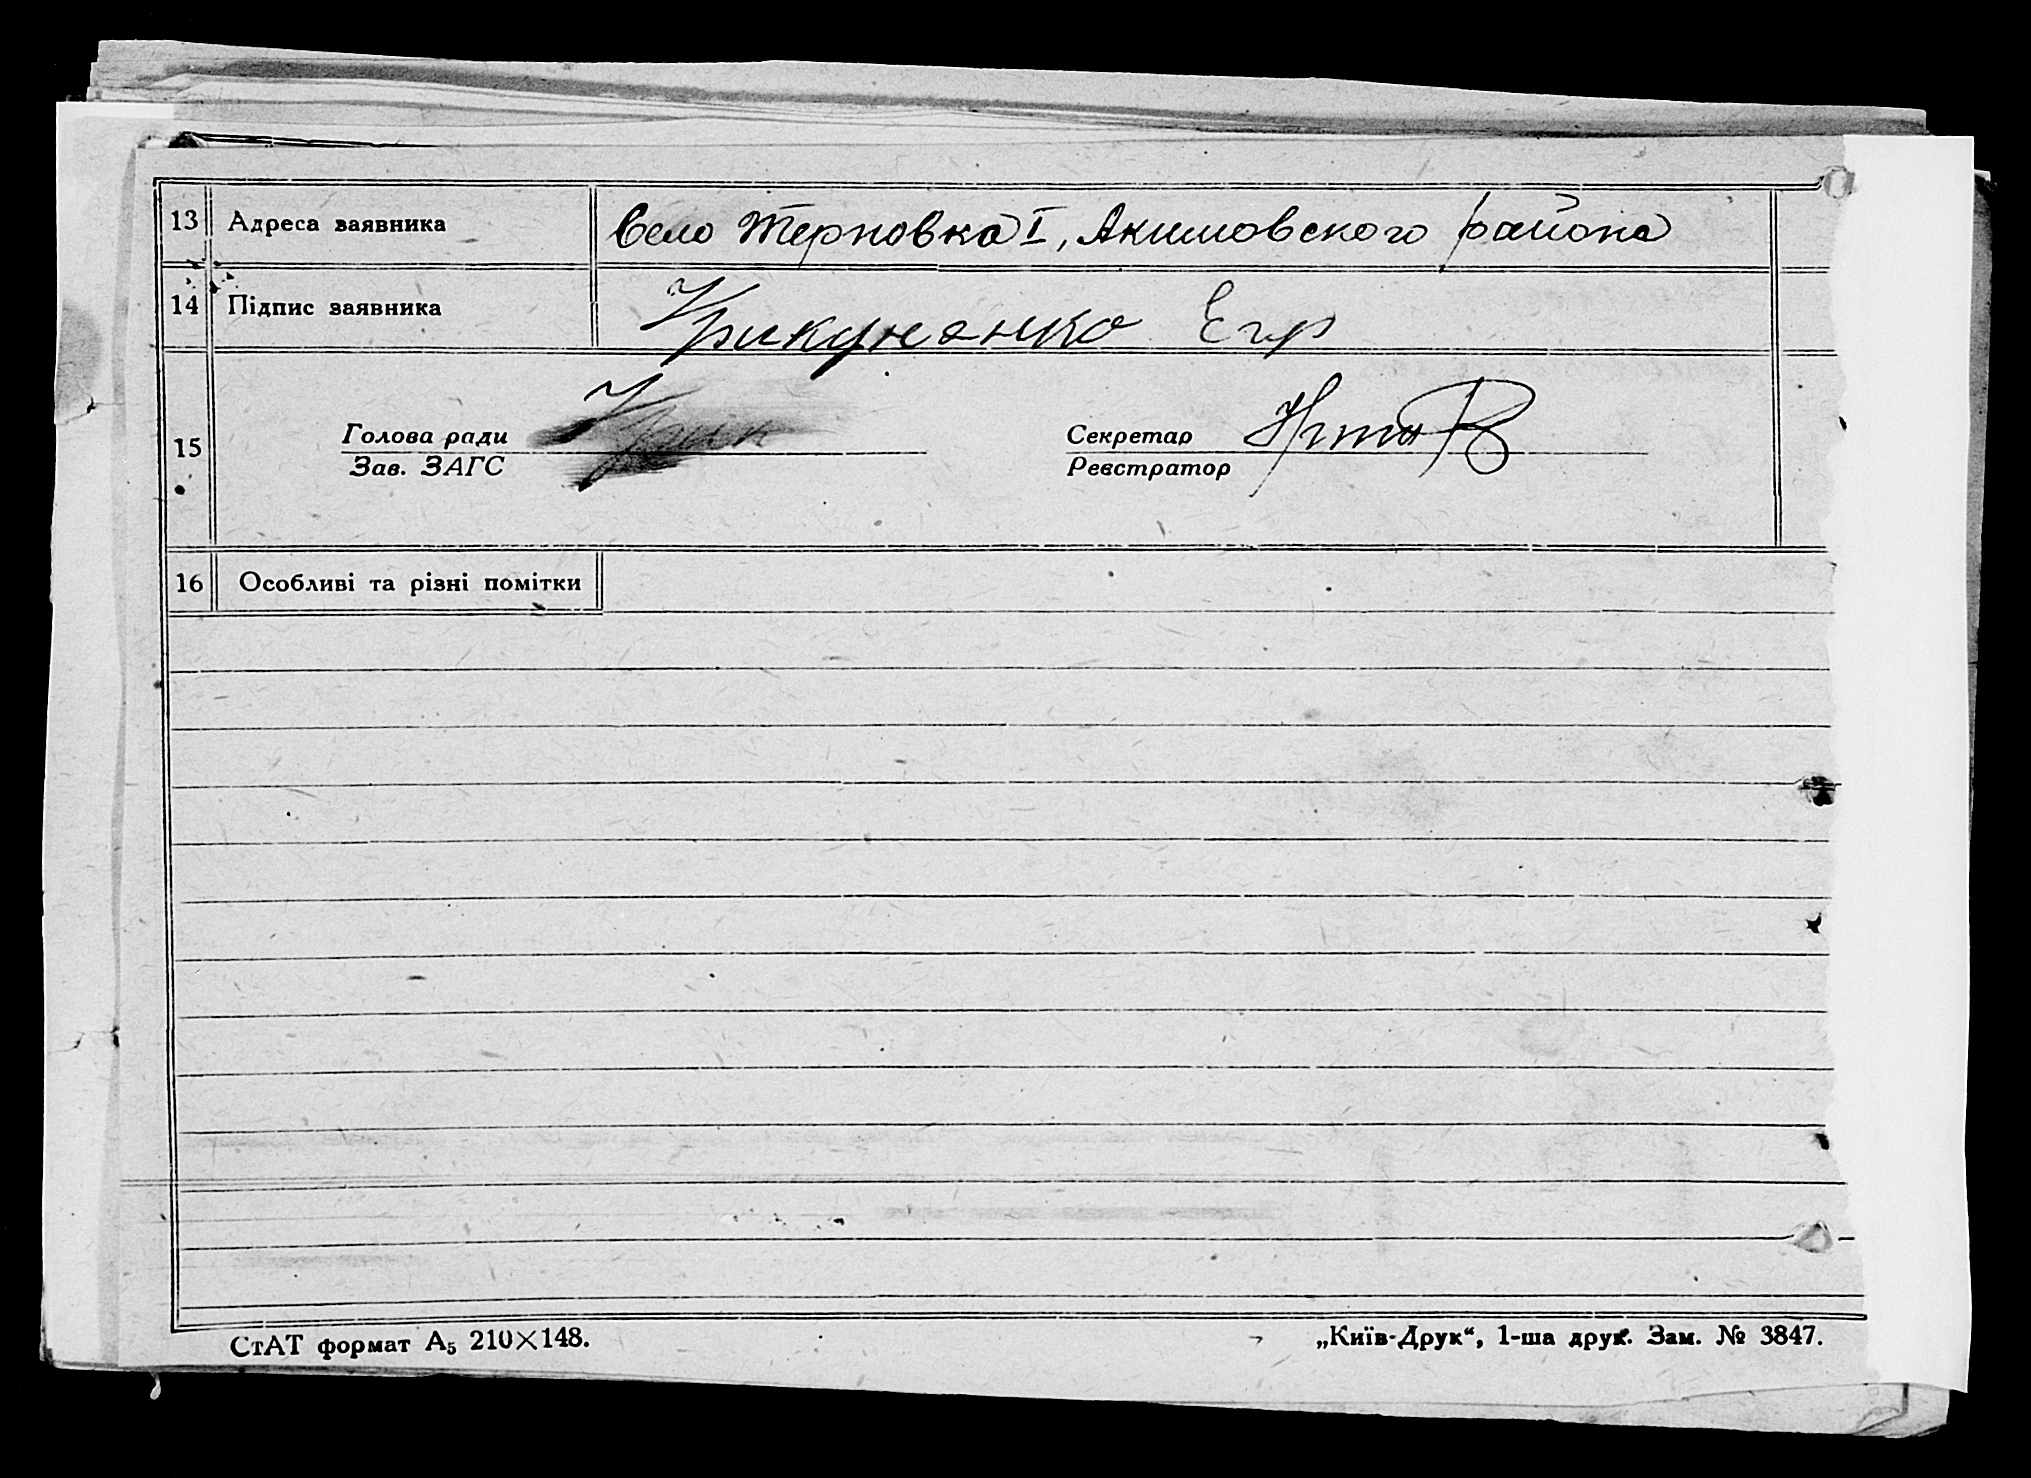 13 Адреса заявника Село Терновка I, Акимовского района
14 Підпис заявника Крикуненко Егр
15 Голова ради Крик Секретар
Зав. ЗАГС Реєстратор
16 Особливі та різні помітки
СтАТ формат А5 210×148. „Київ-Друк“, 1-ша друк. Зам. № 3847.